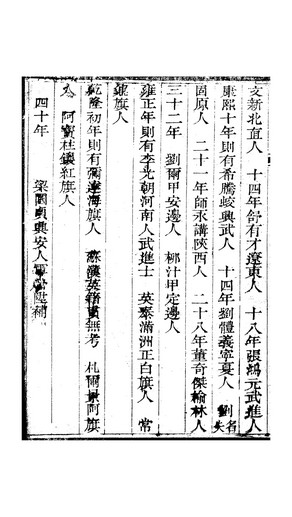 文新北直人　十四年舒有才遼東人　十八年張鴻元武進人
康熙十年則有希騰峻典武人　十四年劉體義寧夏人　劉名失
固原人　二十一年師永講陝西人　二十八年董奇傑榆林人
三十二年　劉爾甲安邊人　柳汁甲定邊人
雍正年則有李光朝河南人武進士　英泰滿洲正白旗人　常
旗人
乾隆初年則有　達海旗人　蘇漢英籍貫無考　札爾景阿旗
人　阿賓柱鑲紅旗人
四十年　梁國貞興安人軍　陞補